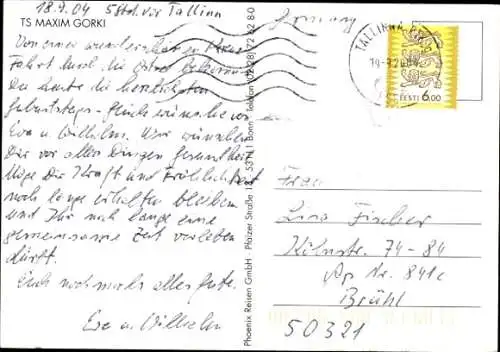 18.9.04 5 Std. vor Tallinn
TS MAXIM GORKI
Von einer wunderschönen
Fahrt durch die Ostsee bekommen
Du heute die herzlichsten
Geburtstagsglückwünsche von
Eva u. Wilhelm. Wir wünschen
Dir vor allen Dingen Gesundheit
Möge Dir Kraft und Fröhlichkeit
noch lange erhalten bleiben
und Ihr noch lange eine
gemeinsame Zeit verleben
dürft.
Euch nochmals alles Gute.
Eva u. Wilhelm
Phoenix Reisen GmbH · Pfälzer Straße 14 · 53111 Bonn · Telefon 0228/72 62 8-0
Germany
TALLINN
EESTI 6.00
Frau
Lina Fischer
Kölnstr. 74-84
Ap Nr. 841c
Brühl
50321